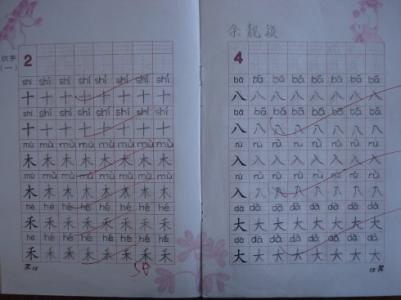 识字
(一)
2
shí shí shí shí shí shí shí
十 十 十 十 十 十 十
shí shí shí shí shí shí shí
十 十 十 十 十 十 十
mù mù mù mù mù mù mù
木 木 木 木 木 木 木
mù mù mù mù mù mù mù
木 木 木 木 木 木 木
hé hé hé hé hé hé hé
禾 禾 禾 禾 禾 禾 禾
hé hé hé hé hé hé hé
禾 禾 禾 禾 禾 禾 禾
4
bā bā bā bā bā bā bā
八 八 八 八 八 八 八
bā bā bā bā bā bā bā
八 八 八 八 八 八 八
rù rù rù rù rù rù rù
入 入 入 入 入 入 入
rù rù rù rù rù rù rù
入 入 入 入 入 入 入
dà dà dà dà dà dà dà
大 大 大 大 大 大 大
dà dà dà dà dà dà dà
大 大 大 大 大 大 大